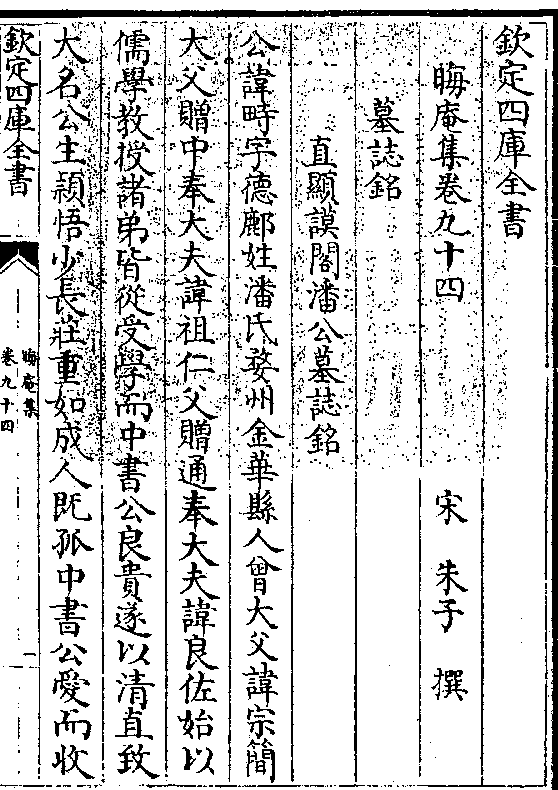 欽定四庫全書
晦庵集卷九十四　宋　朱子　撰
墓誌銘
直顯謨閣潘公墓誌銘
公諱畤字德鄜姓潘氏婺州金華縣人曾大父諱宗簡
大父贈中奉大夫諱祖仁父贈通奉大夫諱良佐始以
儒學教授諸弟皆從受學而中書公良貴遂以清直致
大名公生穎悟少長莊重如成人既孤中書公愛而收
欽定四庫全書
晦庵集
卷九十四
一